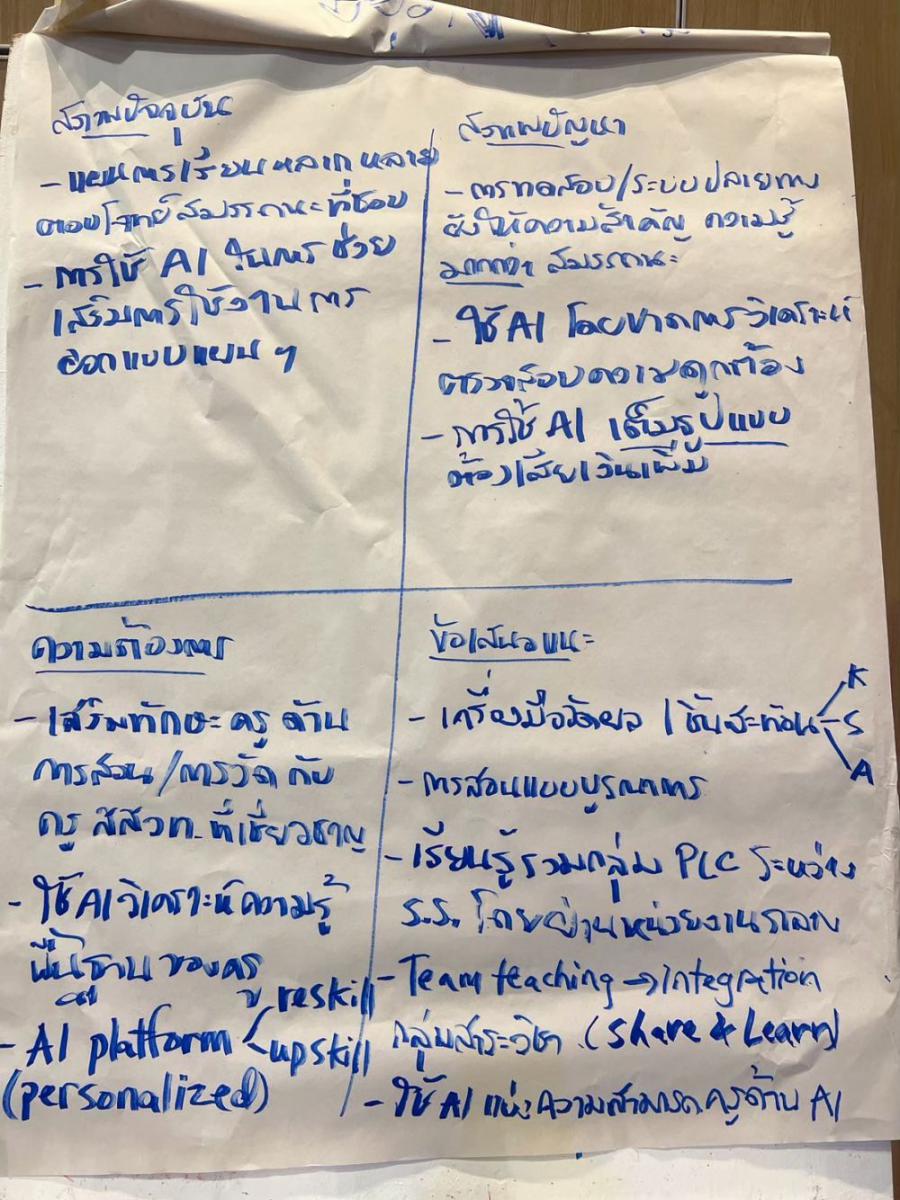 สภาพปัจจุบัน
- แผนการเรียนหลากหลาย
ตอบโจทย์สมรรถนะที่ชอบ
- การใช้ AI ในการช่วย
เสริมการใช้งานการ
ออกแบบแผน ฯ
สภาพปัญหา
- การทดสอบ/ระบบปลายทาง
ยังให้ความสำคัญ ความรู้
มากกว่า สมรรถนะ
- ใช้ AI โดยขาดการวิเคราะห์
ตรวจสอบความถูกต้อง
- การใช้ AI เต็มรูปแบบ
ต้องเสียเงินเพิ่ม
ความต้องการ
- เสริมทักษะครู ด้าน
การสอน/การวัด กับ
ครู สสวท. ที่เชี่ยวชาญ
- ใช้ AI วิเคราะห์ความรู้
พื้นฐาน ของครู
- AI platform reskill upskill
(personalized)
ข้อเสนอแนะ
- เครื่องมือวัดผล / ที่สะท้อน K S A
- การสอนแบบบูรณาการ
- เรียนรู้รวมกลุ่ม PLC ระหว่าง
ร.ร. โดยผ่านหน่วยงานกลาง
- Team teaching → Integration
กลุ่มสาระวิชา (Share & Learn)
- ใช้ AI แบ่งความสามารถครูด้าน AI